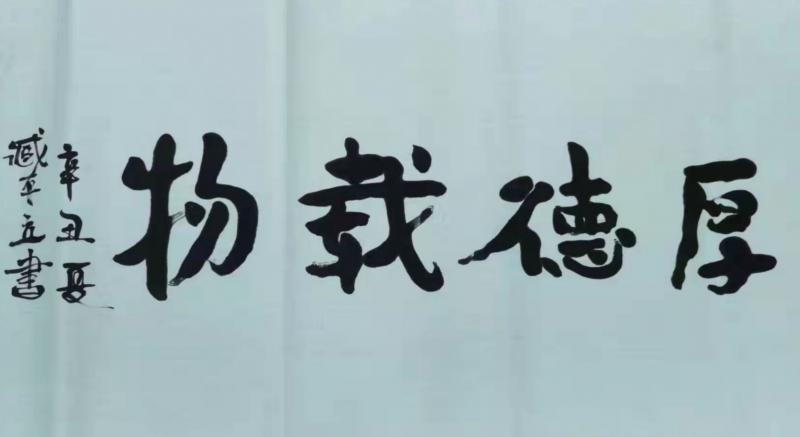 厚德载物
辛丑夏
臧亭立書